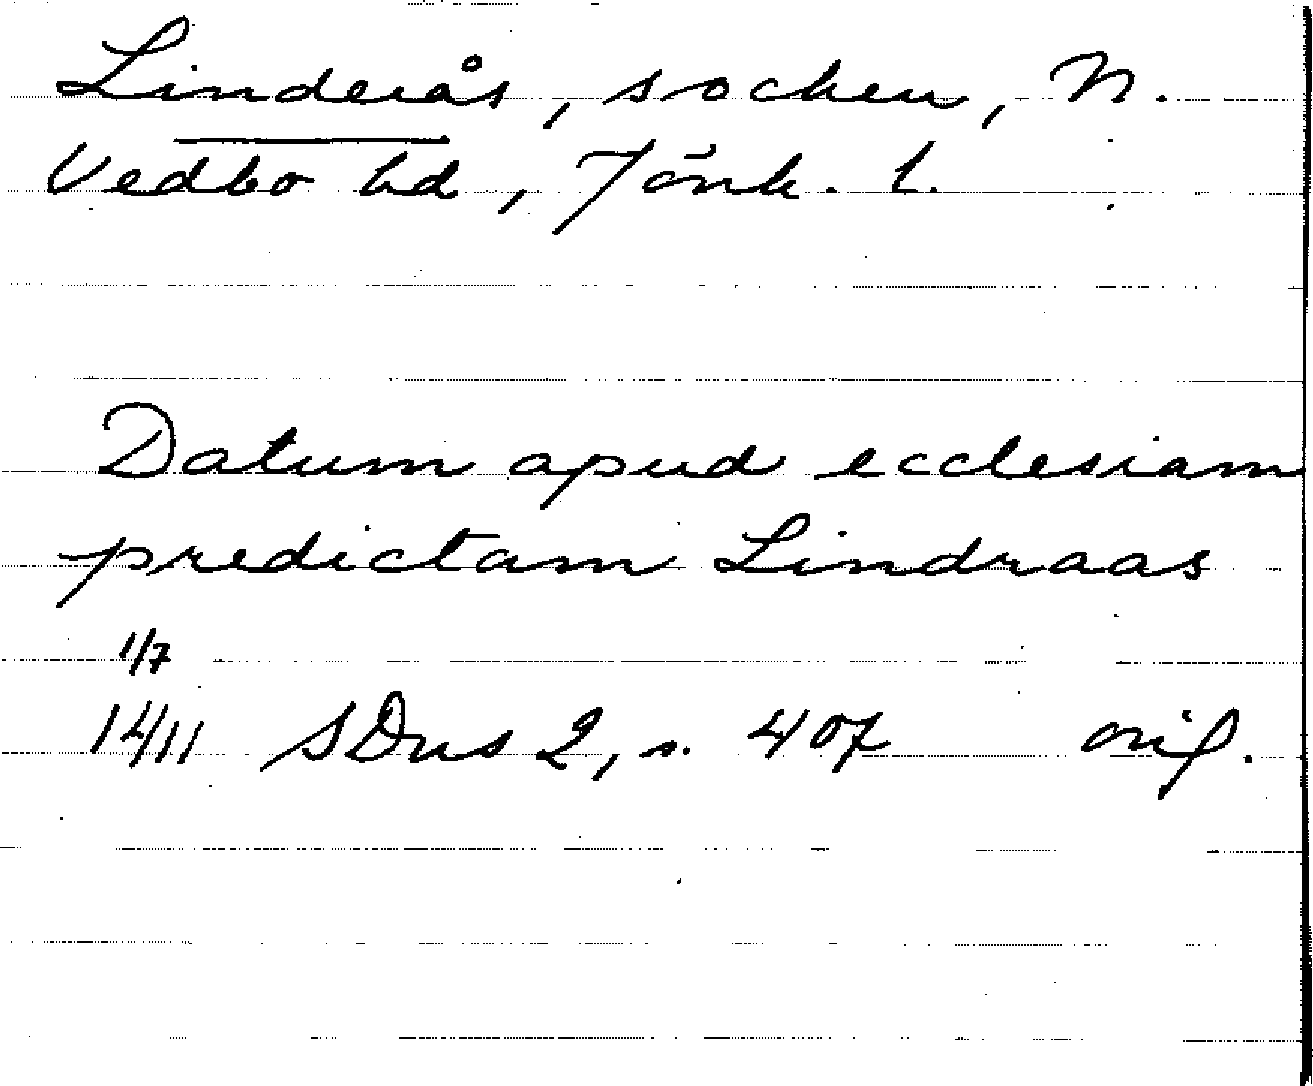 Linderås, socken, N.
Vedbo hd, Jönk. l.
Datum apud ecclesiam
predictam Lindraas
1/7
1411 SDns 2, s. 407 orig.